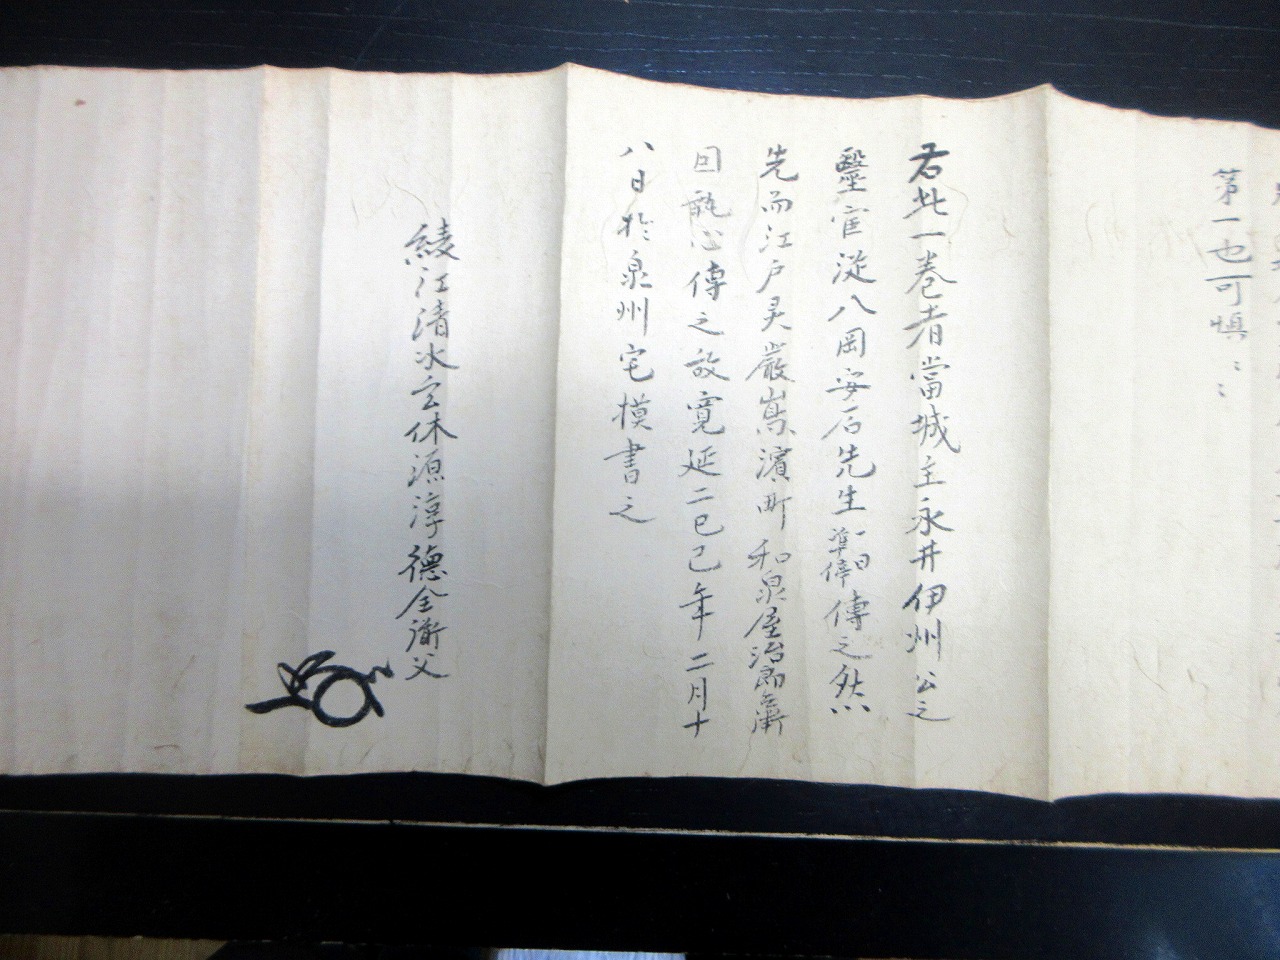 第一也可慎〻〻
右此一巻者當城主永井伊州公之
毉官従八岡安石先生 傳之然
先而江戸灵巌嶌濱町和泉屋治郎兵衛
回 心傳之故寛延二己巳年二月十
八日於泉州宅摸書之
綾江清水玄休源淳德全衛父